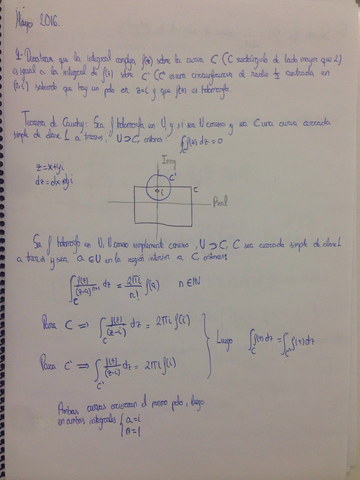 Mayo 2016.
1- Demostrar que la integral compleja f(z) sobre la curva C (C rectángulo de lado mayor que 2)
es igual a la integral de f(z) sobre C' (C' como circunferencia de radio ½ centrada en
z=i) sabiendo que hay un polo en z=i y que f(z) es holomorfa.
Teorema de Cauchy: Sea f holomorfa en U, y si U conexo y sea C una curva cerrada
simple de clase 1 a trozos, U⊃C, entonces ∫_C f(z) dz = 0
z=x+yi
dz=dx+dyi
Imag
C'
i
C
Real
Sea f holomorfa en U, U conexo simplemente conexo, U⊃C, C sea cerrada simple de clase 1
a trozos y sea a∈U en la región interior a C, entonces:
∫_C f(z)/(z-a)^(n+1) dz = 2πi/n! f(a) n∈ℕ
Para C ⇒ ∫_C f(z)/(z-i) dz = 2πi f(i)
Luego ∫_C f(z)dz = ∫_C' f(z)dz
Para C' ⇒ ∫_C' f(z)/(z-i) dz = 2πi f(i)
Ambas curvas encierran el mismo polo, luego
en ambas integrales { a=i
n=1